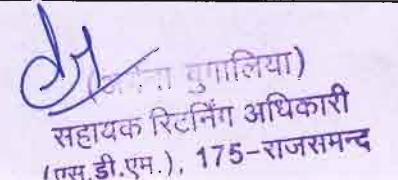 बुगालिया)
सहायक रिटर्निंग अधिकारी
(एस.डी.एम.), 175-राजसमन्द